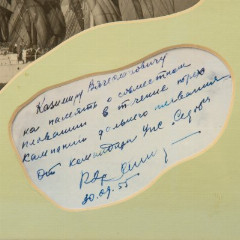 Казимиру Вячеславовичу
как память о совместном
плавании в течение трех
кампаний дальнего плавания
От командира УПС Седов
20.09.55